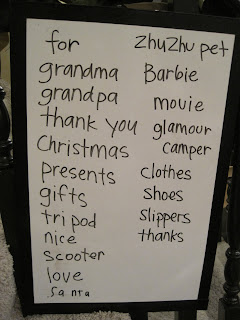 for
grandma
grandpa
thank you
Christmas
presents
gifts
tripod
nice
scooter
love
santa
zhuzhu pet
Barbie
movie
glamour
camper
clothes
shoes
slippers
thanks